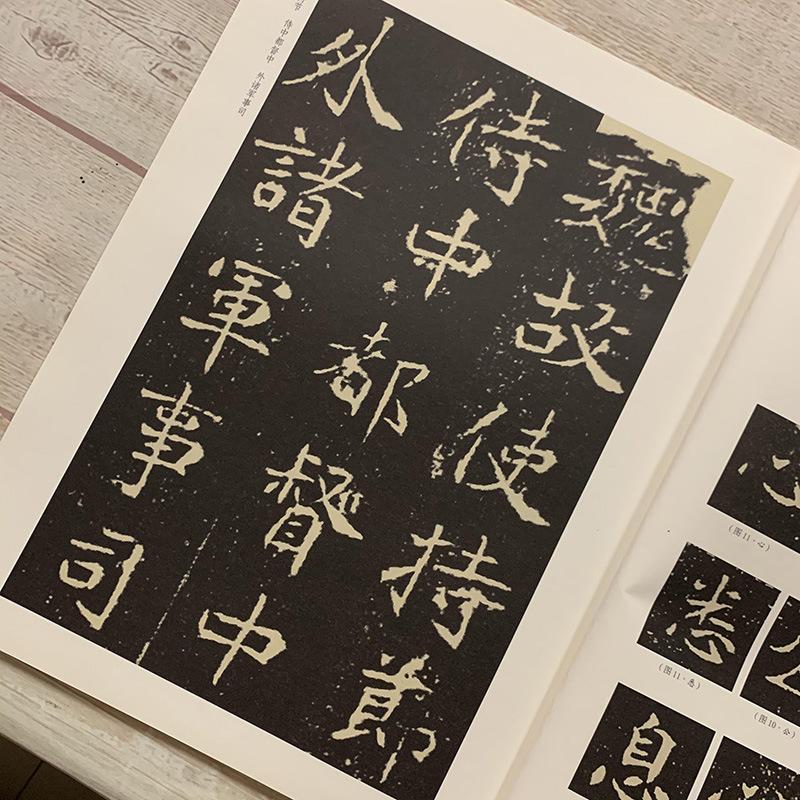 魏故使持節
侍中都督中
外諸軍事司
节 侍中都督中 外诸军事司
(图11·心)
悉
(图11·悉)
(图10·公)
息